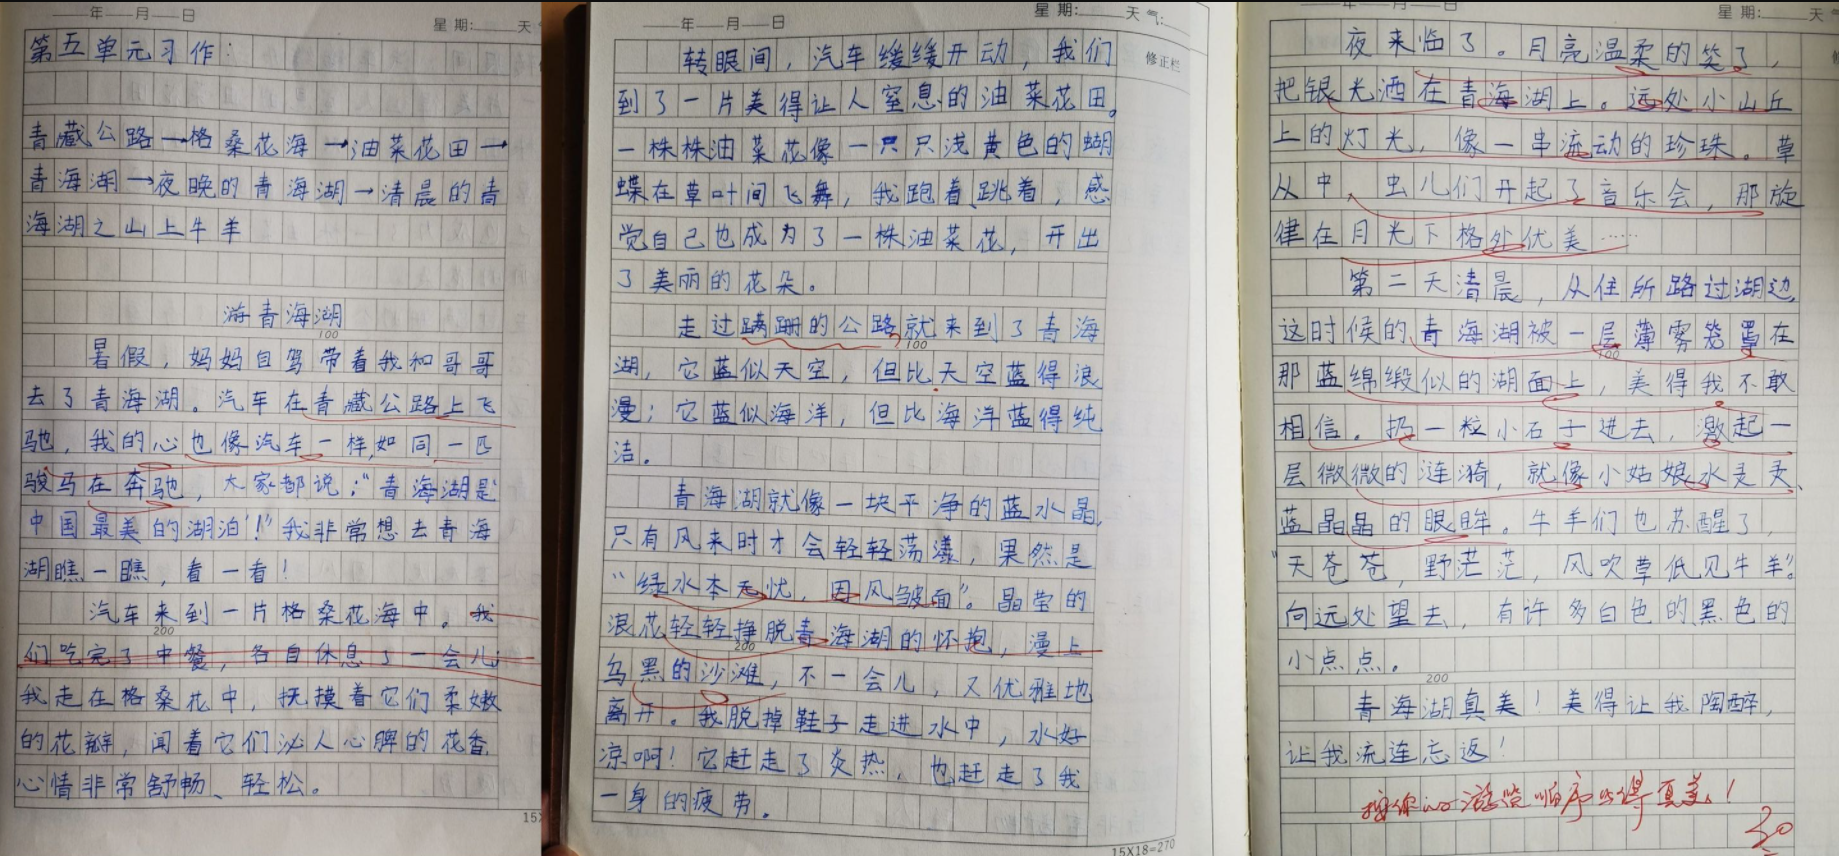 年 月 日
星期: 天
第五单元习作:
青藏公路→格桑花海→油菜花田→
青海湖→夜晚的青海湖→清晨的青
海湖之山上牛羊
游青海湖
100
暑假，妈妈自驾带着我和哥哥
去了青海湖。汽车在青藏公路上飞
驰，我的心也像汽车一样,如同一匹
骏马在奔驰，大家都说:“青海湖是
中国最美的湖泊!”我非常想去青海
湖瞧一瞧，看一看!
汽车来到一片格桑花海中。我
200
们吃完了中餐，各自休息了一会儿,
我走在格桑花中，抚摸着它们柔嫩
的花瓣，闻着它们沁人心脾的花香,
心情非常舒畅、轻松。
年 月 日
星期: 天气:
修正栏
转眼间，汽车缓缓开动，我们
到了一片美得让人窒息的油菜花田。
一株株油菜花像一只只浅黄色的蝴
蝶在草叶间飞舞，我跑着,跳着，感
觉自己也成为了一株油菜花，开出
了美丽的花朵。
走过蹒跚的公路就来到了青海
100
湖，它蓝似天空，但比天空蓝得浪
漫；它蓝似海洋，但比海洋蓝得纯
洁。
青海湖就像一块平净的蓝水晶,
只有风来时才会轻轻荡漾，果然是
“绿水本无忧，因风皱面”。晶莹的
浪花轻轻挣脱青海湖的怀抱，漫上
200
乌黑的沙滩，不一会儿，又优雅地
离开。我脱掉鞋子走进水中，水好
凉啊!它赶走了炎热，也赶走了我
一身的疲劳。
15X18=270
年 月 日
星期: 天
夜来临了。月亮温柔的笑了，
把银光洒在青海湖上。远处小山丘
上的灯光，像一串流动的珍珠。草
从中，虫儿们开起了音乐会，那旋
律在月光下格外优美……
第二天清晨，从住所路过湖边,
这时候的青海湖被一层薄雾笼罩在
100
那蓝绵缎似的湖面上，美得我不敢
相信。扔一粒小石子进去，激起一
层微微的涟漪，就像小姑娘水灵灵、
蓝晶晶的眼眸。牛羊们也苏醒了，
“天苍苍，野茫茫，风吹草低见牛羊”。
向远处望去，有许多白色的黑色的
小点点。
200
青海湖真美!美得让我陶醉，
让我流连忘返!
按你的游览顺序写得真美!
30